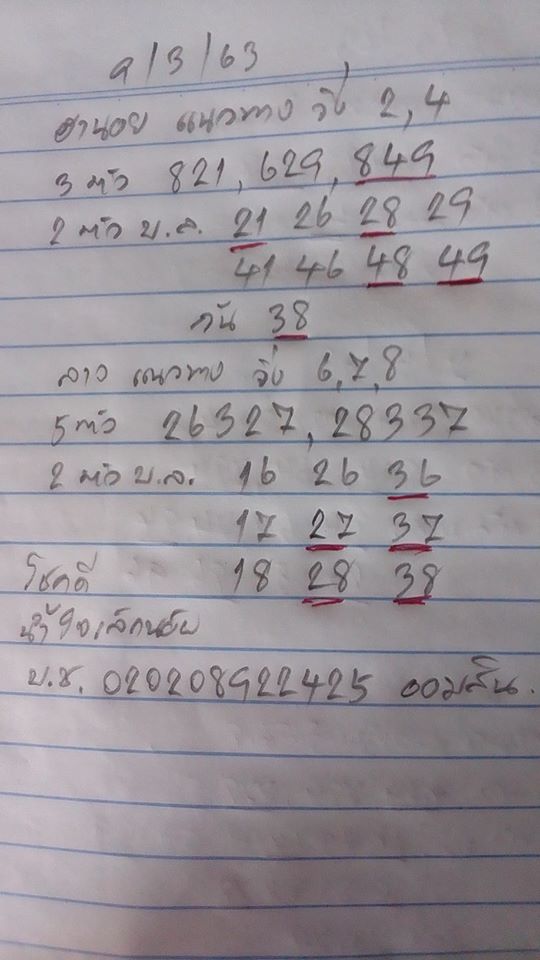 9/3/63
ฮานอย แนวทาง วิ่ง 2,4
3 ตัว 821, 629, 849
2 ตัว บ.ล. 21 26 28 29
41 46 48 49
กัน 38
ลาว แนวทาง วิ่ง 6,7,8
5 ตัว 26327, 28337
2 ตัว บ.ล. 16 26 36
17 27 37
โชคดี 18 28 38
น้ำใจเล็กน้อย
บ.ช. 020208922425 ออมสิน.